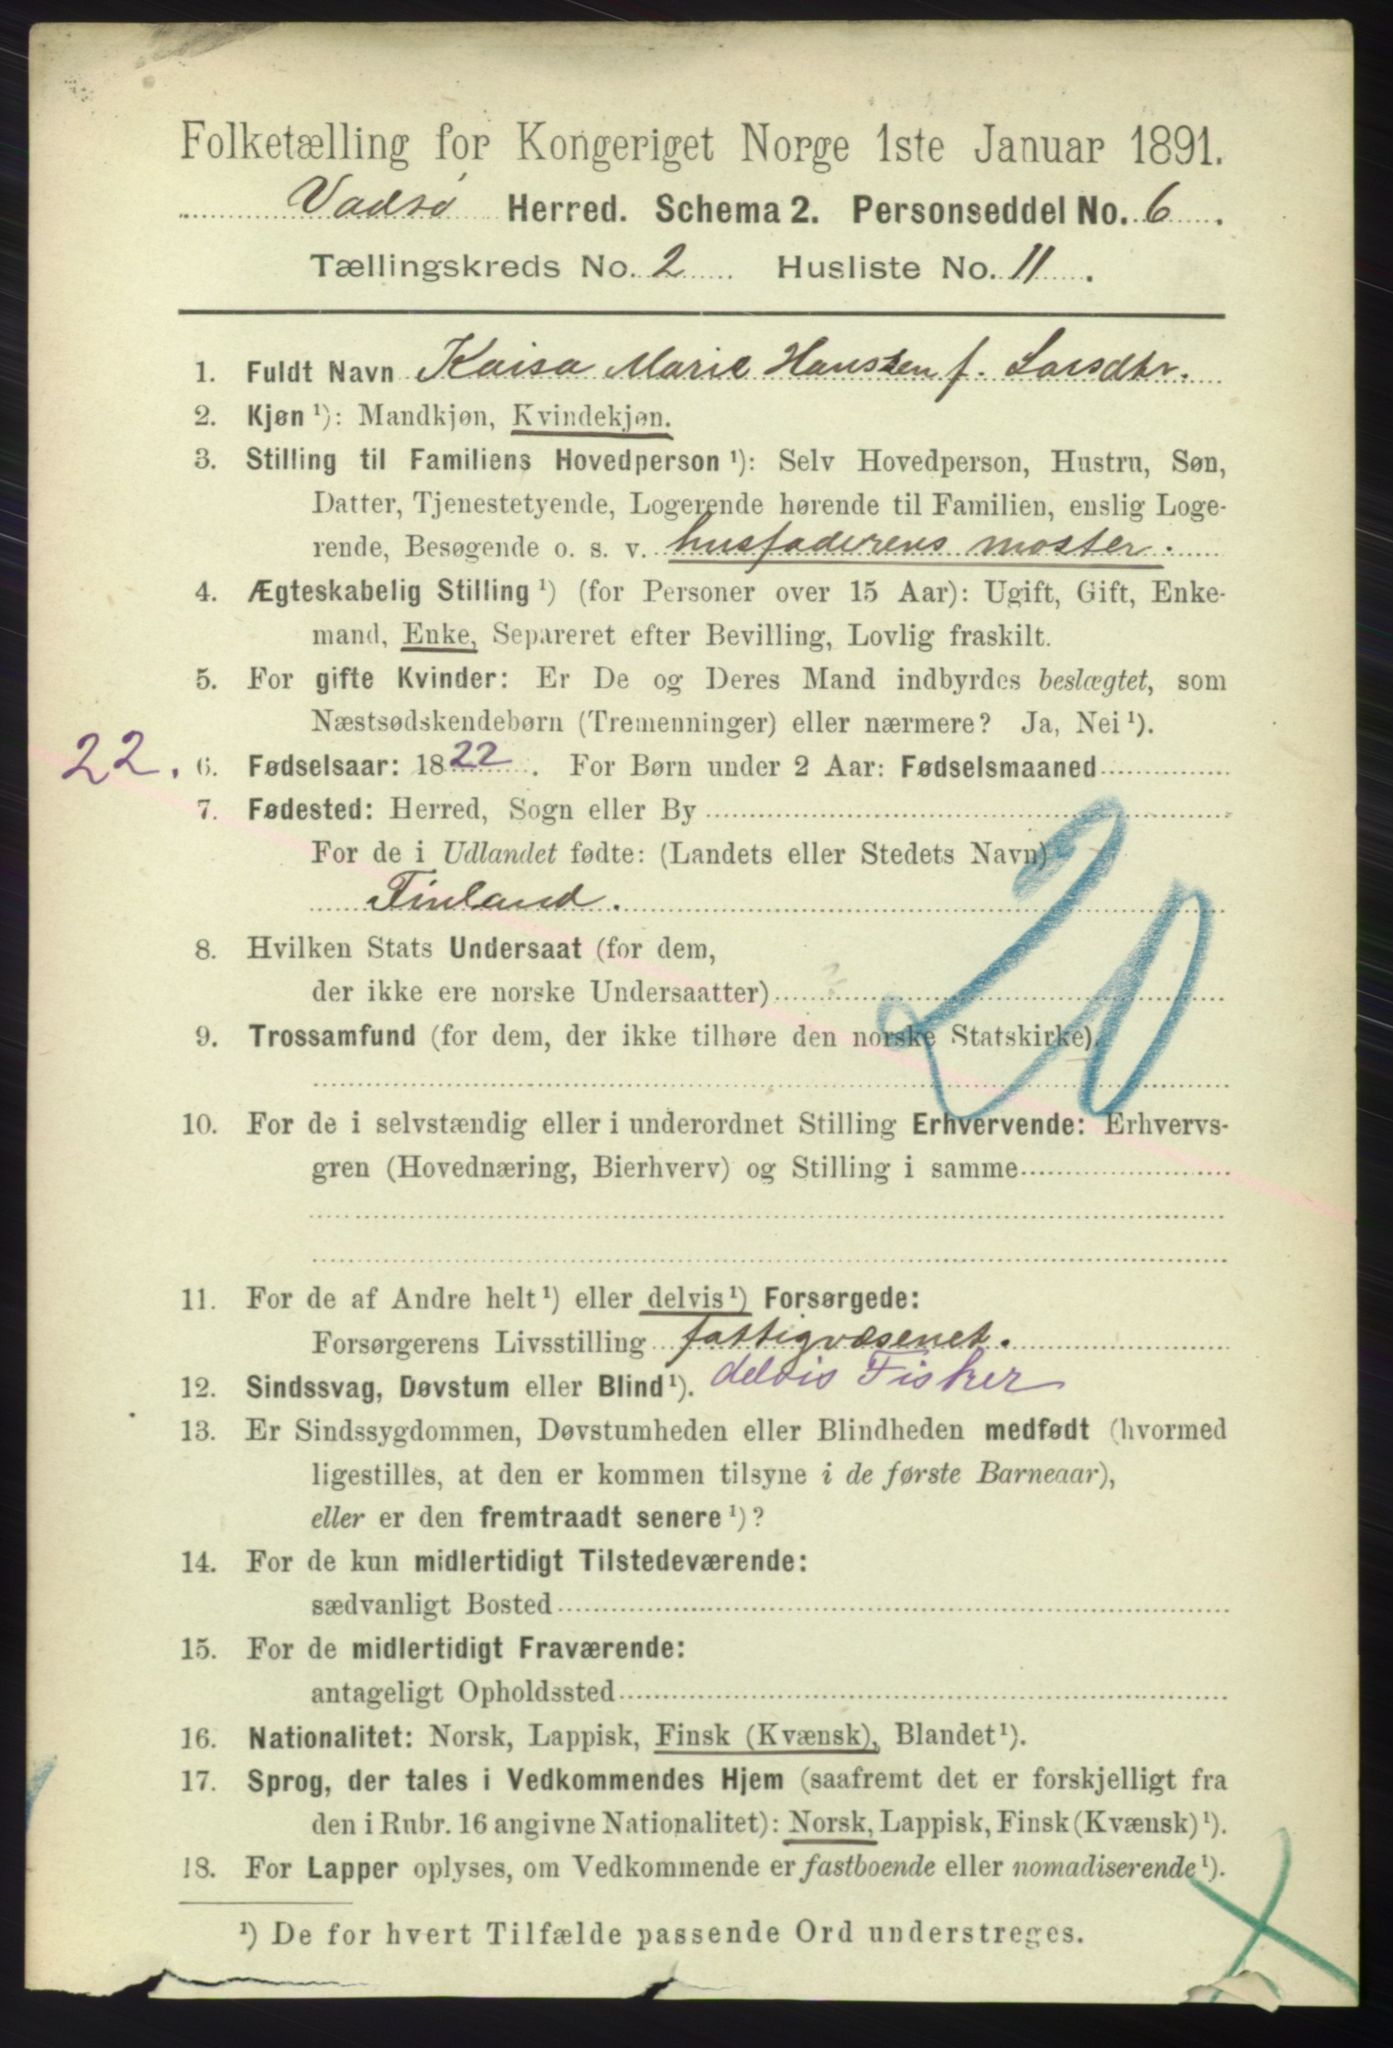 Folketælling for Kongeriget Norge 1ste Januar 1891.
Vadsø Herred. Schema 2. Personseddel No. 6.
Tællingskreds No. 2 Husliste No. 11.
1. Fuldt Navn Kaisa Marie Hansen f. Larsdtr.
2. Kjøn ¹): Mandkjøn, Kvindekjøn.
3. Stilling til Familiens Hovedperson ¹): Selv Hovedperson, Hustru, Søn,
Datter, Tjenestetyende, Logerende hørende til Familien, enslig Loge-
rende, Besøgende o. s. v. husfaderens moster.
4. Ægteskabelig Stilling ¹) (for Personer over 15 Aar): Ugift, Gift, Enke-
mand, Enke, Separeret efter Bevilling, Lovlig fraskilt.
5. For gifte Kvinder: Er De og Deres Mand indbyrdes beslægtet, som
Næstsødskendebørn (Tremenninger) eller nærmere? Ja, Nei ¹).
22. 6. Fødselsaar: 1822. For Børn under 2 Aar: Fødselsmaaned
7. Fødested: Herred, Sogn eller By
For de i Udlandet fødte: (Landets eller Stedets Navn)
Finland.
20
8. Hvilken Stats Undersaat (for dem,
der ikke ere norske Undersaatter)
9. Trossamfund (for dem, der ikke tilhøre den norske Statskirke).
10. For de i selvstændig eller i underordnet Stilling Erhvervende: Erhvervs-
gren (Hovednæring, Bierhverv) og Stilling i samme
11. For de af Andre helt ¹) eller delvis ¹) Forsørgede:
Forsørgerens Livsstilling fattigvæsenet.
12. Sindssvag, Døvstum eller Blind ¹). delvis Fisker
13. Er Sindssygdommen, Døvstumheden eller Blindheden medfødt (hvormed
ligestilles, at den er kommen tilsyne i de første Barneaar),
eller er den fremtraadt senere ¹)?
14. For de kun midlertidigt Tilstedeværende:
sædvanligt Bosted
15. For de midlertidigt Fraværende:
antageligt Opholdssted
16. Nationalitet: Norsk, Lappisk, Finsk (Kvænsk), Blandet ¹).
17. Sprog, der tales i Vedkommendes Hjem (saafremt det er forskjelligt fra
den i Rubr. 16 angivne Nationalitet): Norsk, Lappisk, Finsk (Kvænsk) ¹).
18. For Lapper oplyses, om Vedkommende er fastboende eller nomadiserende ¹).
¹) De for hvert Tilfælde passende Ord understreges.